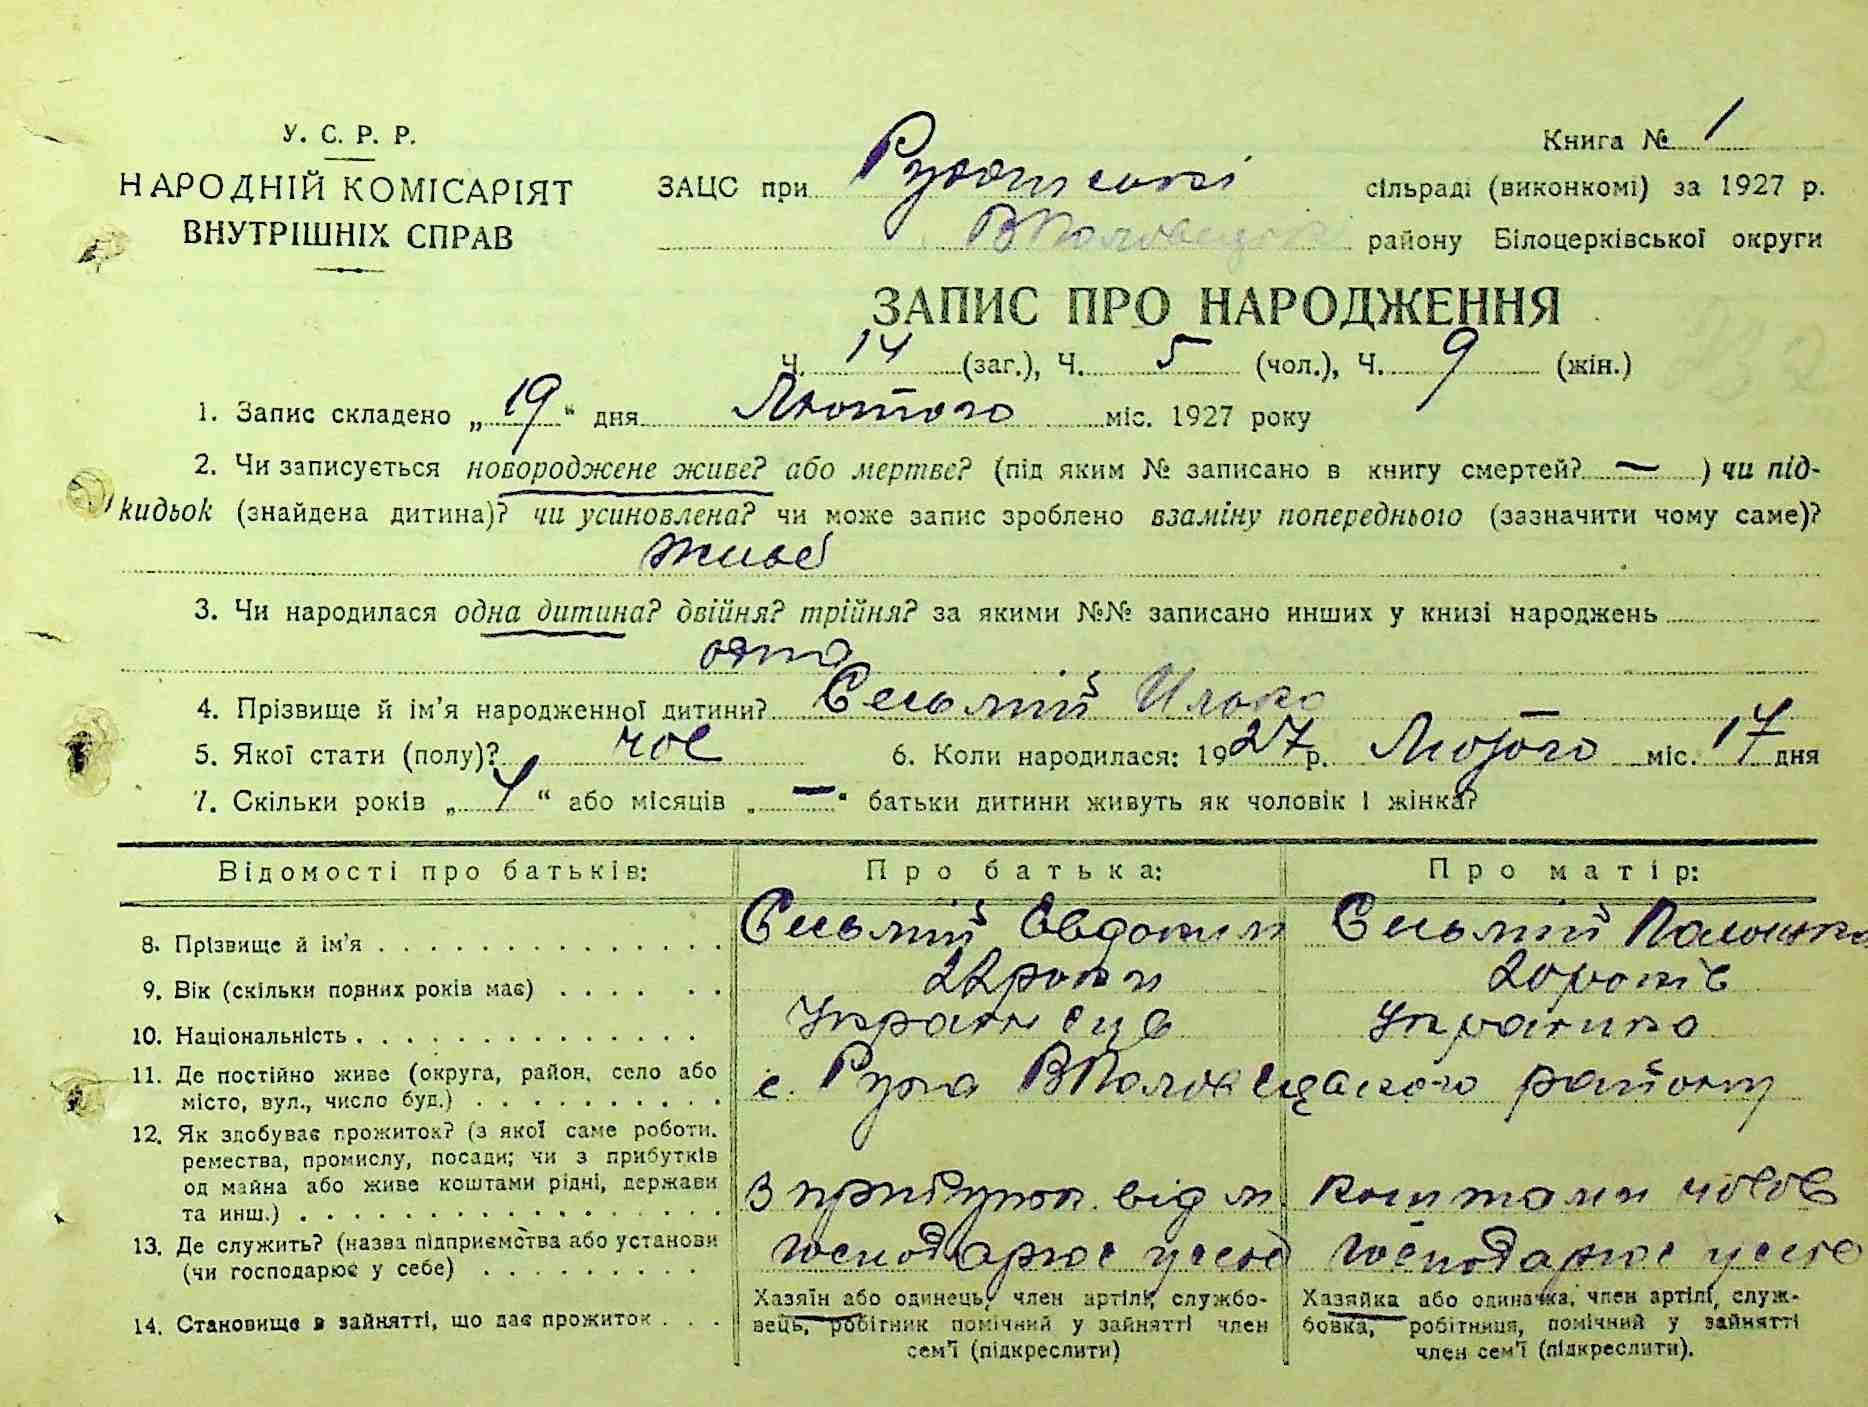 У. С. Р. Р.
НАРОДНІЙ КОМІСАРІЯТ
ВНУТРІШНІХ СПРАВ
Книга № 1
ЗАЦС при сільраді (виконкомі) за 1927 р.
району Білоцерківської округи
ЗАПИС ПРО НАРОДЖЕННЯ
Ч. 14 (заг.), Ч. 5 (чол.), Ч. 9 (жін.)
1. Запис складено „19“ дня Лютого міс. 1927 року
2. Чи записується новороджене живе? або мертве? (під яким № записано в книгу смертей? — ) чи під-
кидьок (знайдена дитина)? чи усиновлена? чи може запис зроблено взаміну попереднього (зазначити чому саме)?
живе
3. Чи народилася одна дитина? двійня? трійня? за якими №№ записано инших у книзі народжень
одна
4. Прізвище й ім'я народженної дитини? Сесьмій Илько
5. Якої стати (полу)? чол 6. Коли народилася: 1927 р. Лютого міс. 17 дня
7. Скільки років „4“ або місяців „—“ батьки дитини живуть як чоловік і жінка?
Відомості про батьків: Про батька: Про матір:
8. Прізвище й ім'я Сесьмій Овдоким Сесьмій
9. Вік (скільки повних років має) 22 роки 20 років
10. Національність Українець Українка
11. Де постійно живе (округа, район, село або
місто, вул., число буд.) с. Руда ВПоловецького району
12. Як здобуває прожиток? (з якої саме роботи.
ремества, промислу, посади; чи з прибутків
од майна або живе коштами рідні, держави
та инш.) З прибутков від м. Коштами чолов
13. Де служить? (назва підприємства або установи
(чи господарює у себе) господарює у себе господарює у себе
14. Становище в зайнятті, що дає прожиток
Хазяїн або одинець, член артілі, службо-
вець, робітник помічний у зайнятті член
сем'ї (підкреслити)
Хазяйка або одиначка, член артілі, служ-
бовка, робітниця, помічний у зайнятті
член сем'ї (підкреслити).